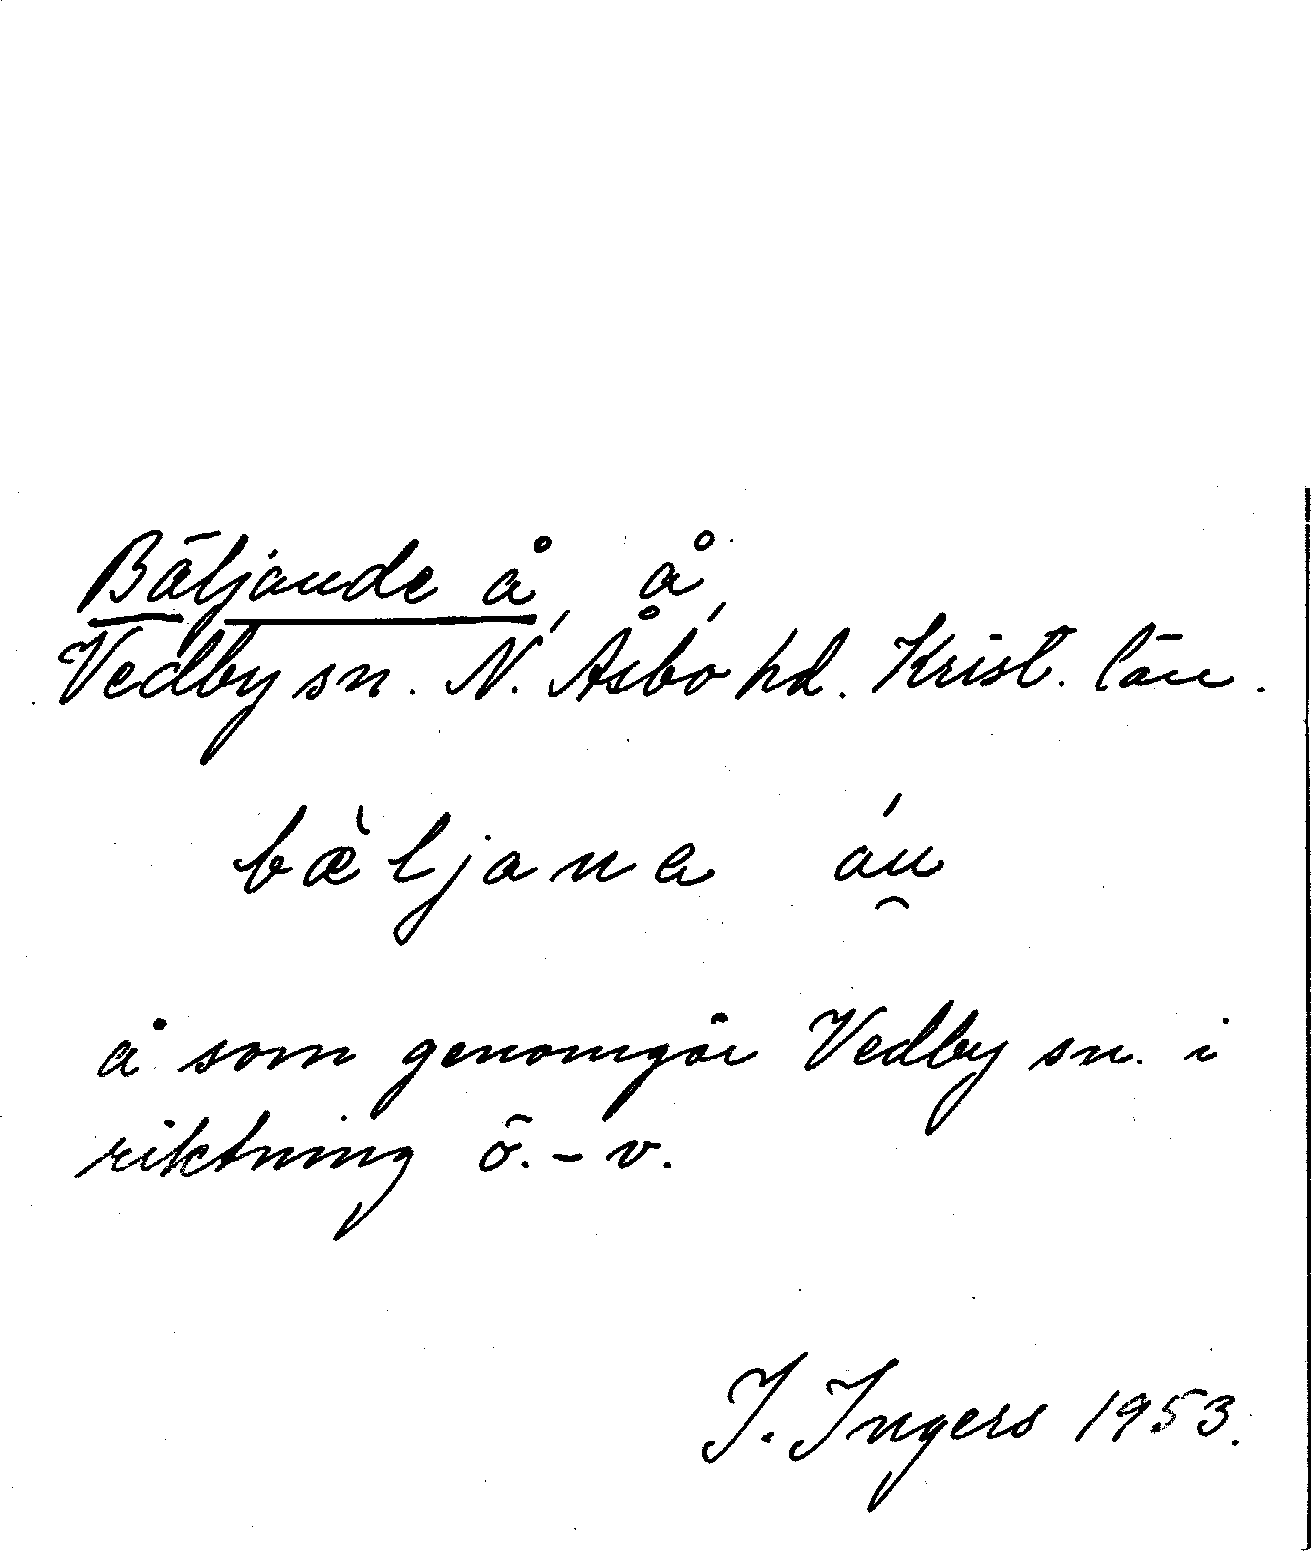 Bäljande å, å,
Vedby sn. N. Åsbo hd. Krist. län.
bæ̀ljana áu̯
å som genomgår Vedby sn. i
riktning ö.-v.
I. Ingers 1953.